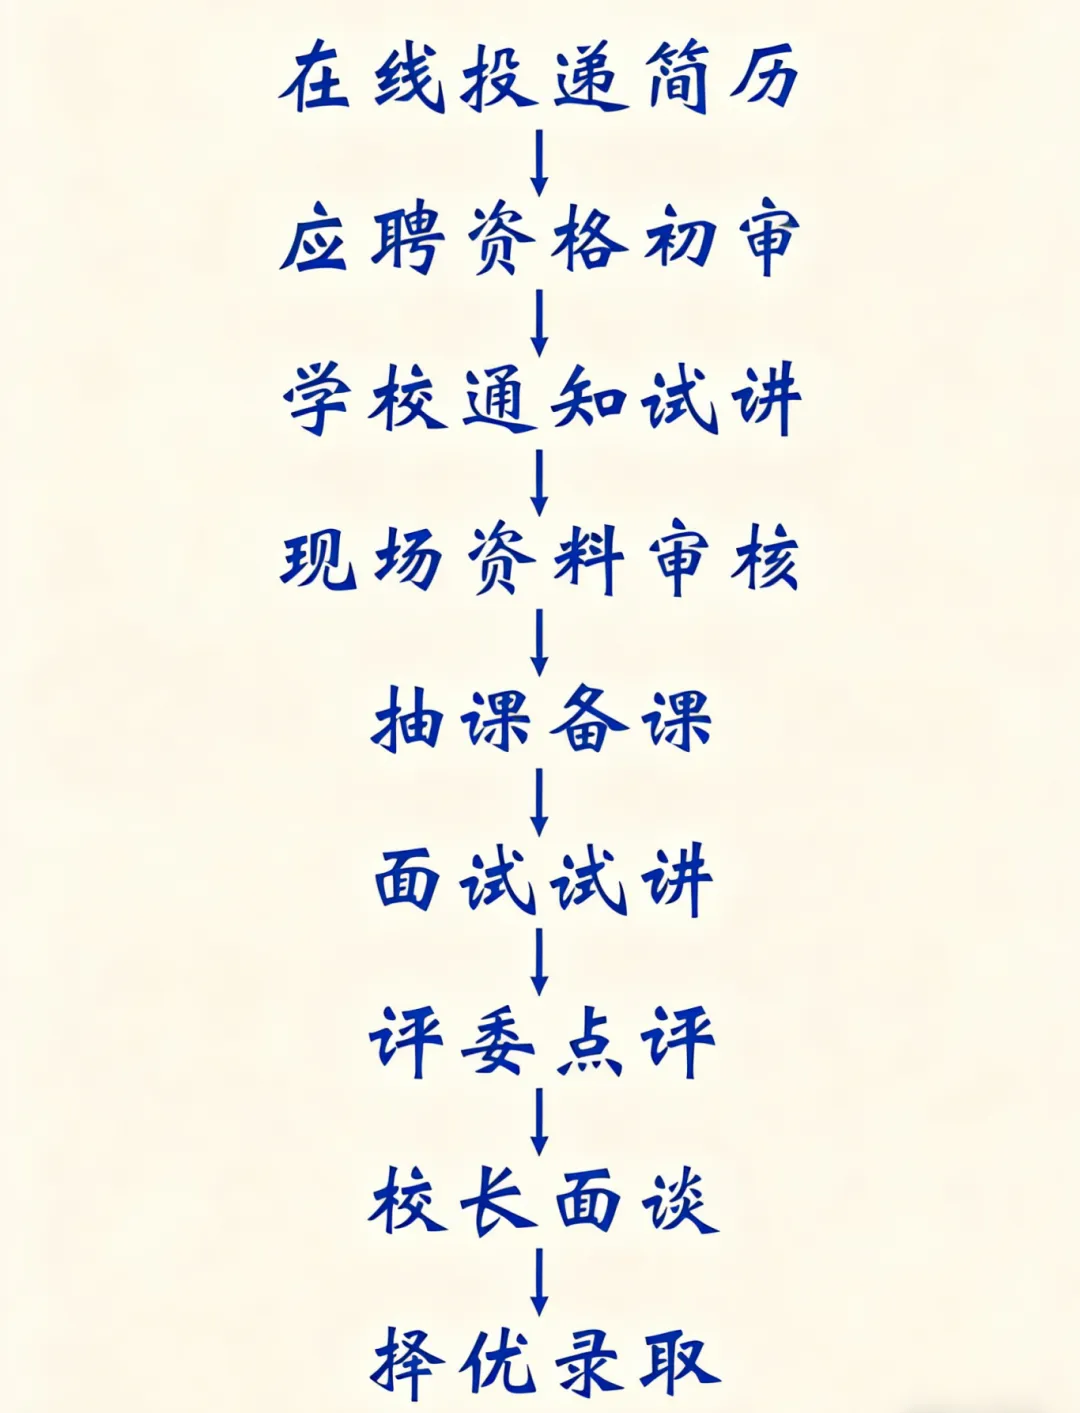 在线投递简历
应聘资格初审
学校通知试讲
现场资料审核
抽课备课
面试试讲
评委点评
校长面谈
择优录取